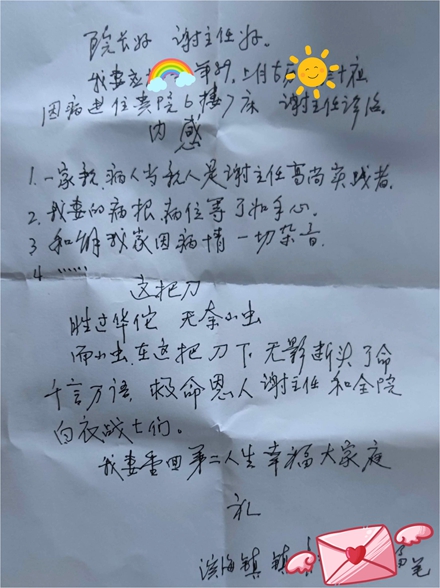 院长好 谢主任好。
我妻 年89,上月古历 三十夜
因病进住贵院6楼7床 谢主任诊治。
内感
1.一家亲,病人当亲人是谢主任高尚实践者,
2.我妻的病根,病位等了如手心。
3 和解我家因病情一切杂音.
4 ……
这把刀
胜过华佗 无奈小虫
而小虫,在这把刀下,无影断头了命
千言万语 救命恩人 谢主任 和全院
白衣战士们。
我妻重回第二人生幸福大家庭
礼
滨海镇 镇 笔